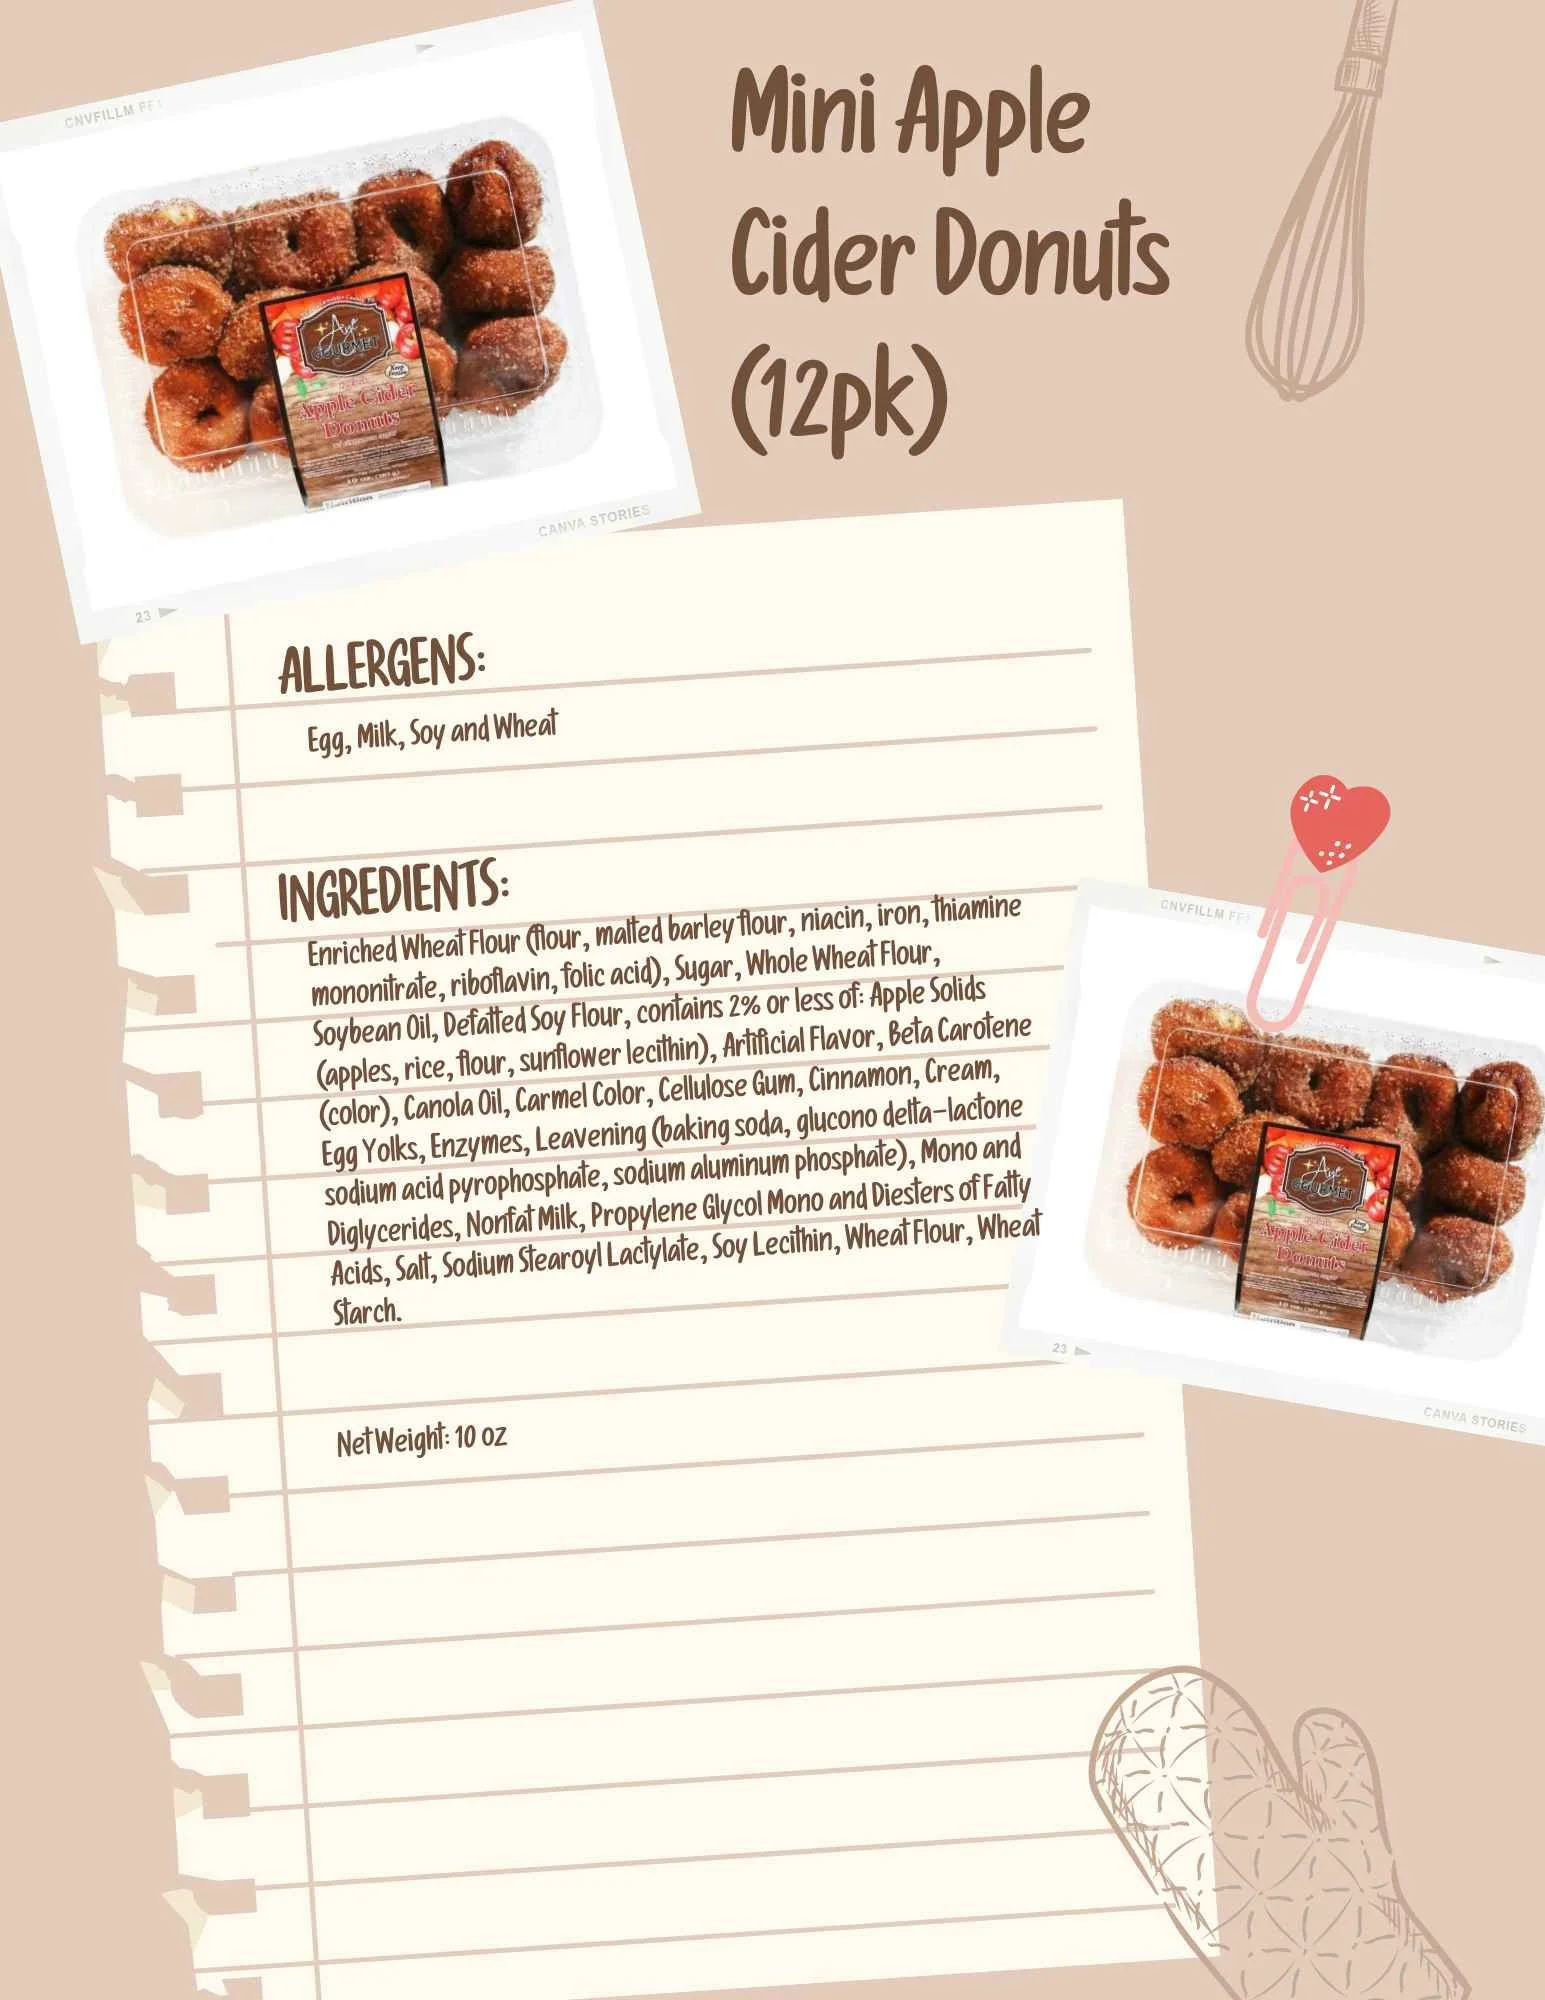 Mini Apple
Cider Donuts
(12pk)
CNVFILLM
Aye
GOURMET
Keep
Frozen
Apple Cider
Donuts
Nutrition
CANVA STORIES
23
ALLERGENS:
Egg, Milk, Soy and Wheat
INGREDIENTS:
Enriched Wheat Flour (flour, malted barley flour, niacin, iron, thiamine
mononitrate, riboflavin, folic acid), Sugar, Whole Wheat Flour,
Soybean Oil, Defatted Soy Flour, contains 2% or less of: Apple Solids
(apples, rice, flour, sunflower lecithin), Artificial Flavor, Beta Carotene
(color), Canola Oil, Carmel Color, Cellulose Gum, Cinnamon, Cream,
Egg Yolks, Enzymes, Leavening (baking soda, glucono delta-lactone
sodium acid pyrophosphate, sodium aluminum phosphate), Mono and
Diglycerides, Nonfat Milk, Propylene Glycol Mono and Diesters of Fatty
Acids, Salt, Sodium Stearoyl Lactylate, Soy Lecithin, Wheat Flour, Wheat
Starch.
Net Weight: 10 oz
CNVFILLM
Aye
GOURMET
Apple Cider
Donuts
23
CANVA STORIES